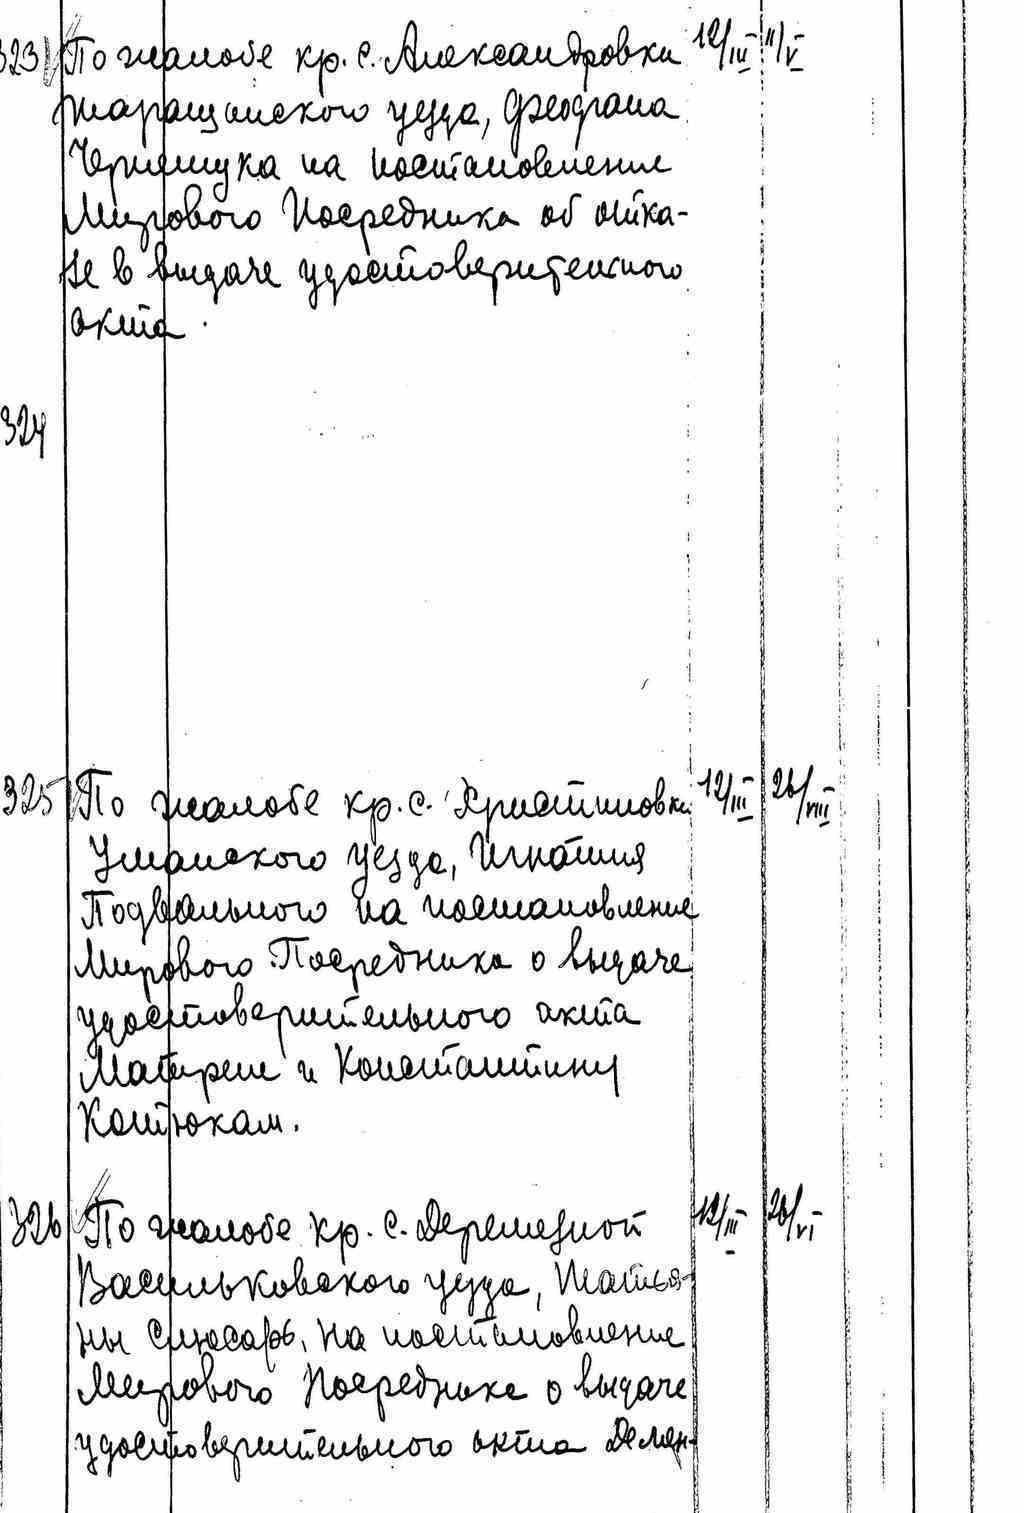 323 По жалобе кр. с. Александровки 12/III 11/V
Таращанского уезда, Феофана
на постановление
Мирового Посредника об отка-
зе в выдаче удостоверительного
акта.
324
325 По жалобе кр. с. Христиновки 12/III 26/VIII
Уманского уезда, Игнатия
Подвального на постановление
Мирового Посредника о выдаче
удостоверительного акта
Матрене и Константину
Костюкам.
326 По жалобе кр. с. Деремезной 12/III 26/VI
Васильковского уезда, Татья-
ны Слюсарь, на постановление
Мирового Посредника о выдаче
удостоверительного акта Демен-